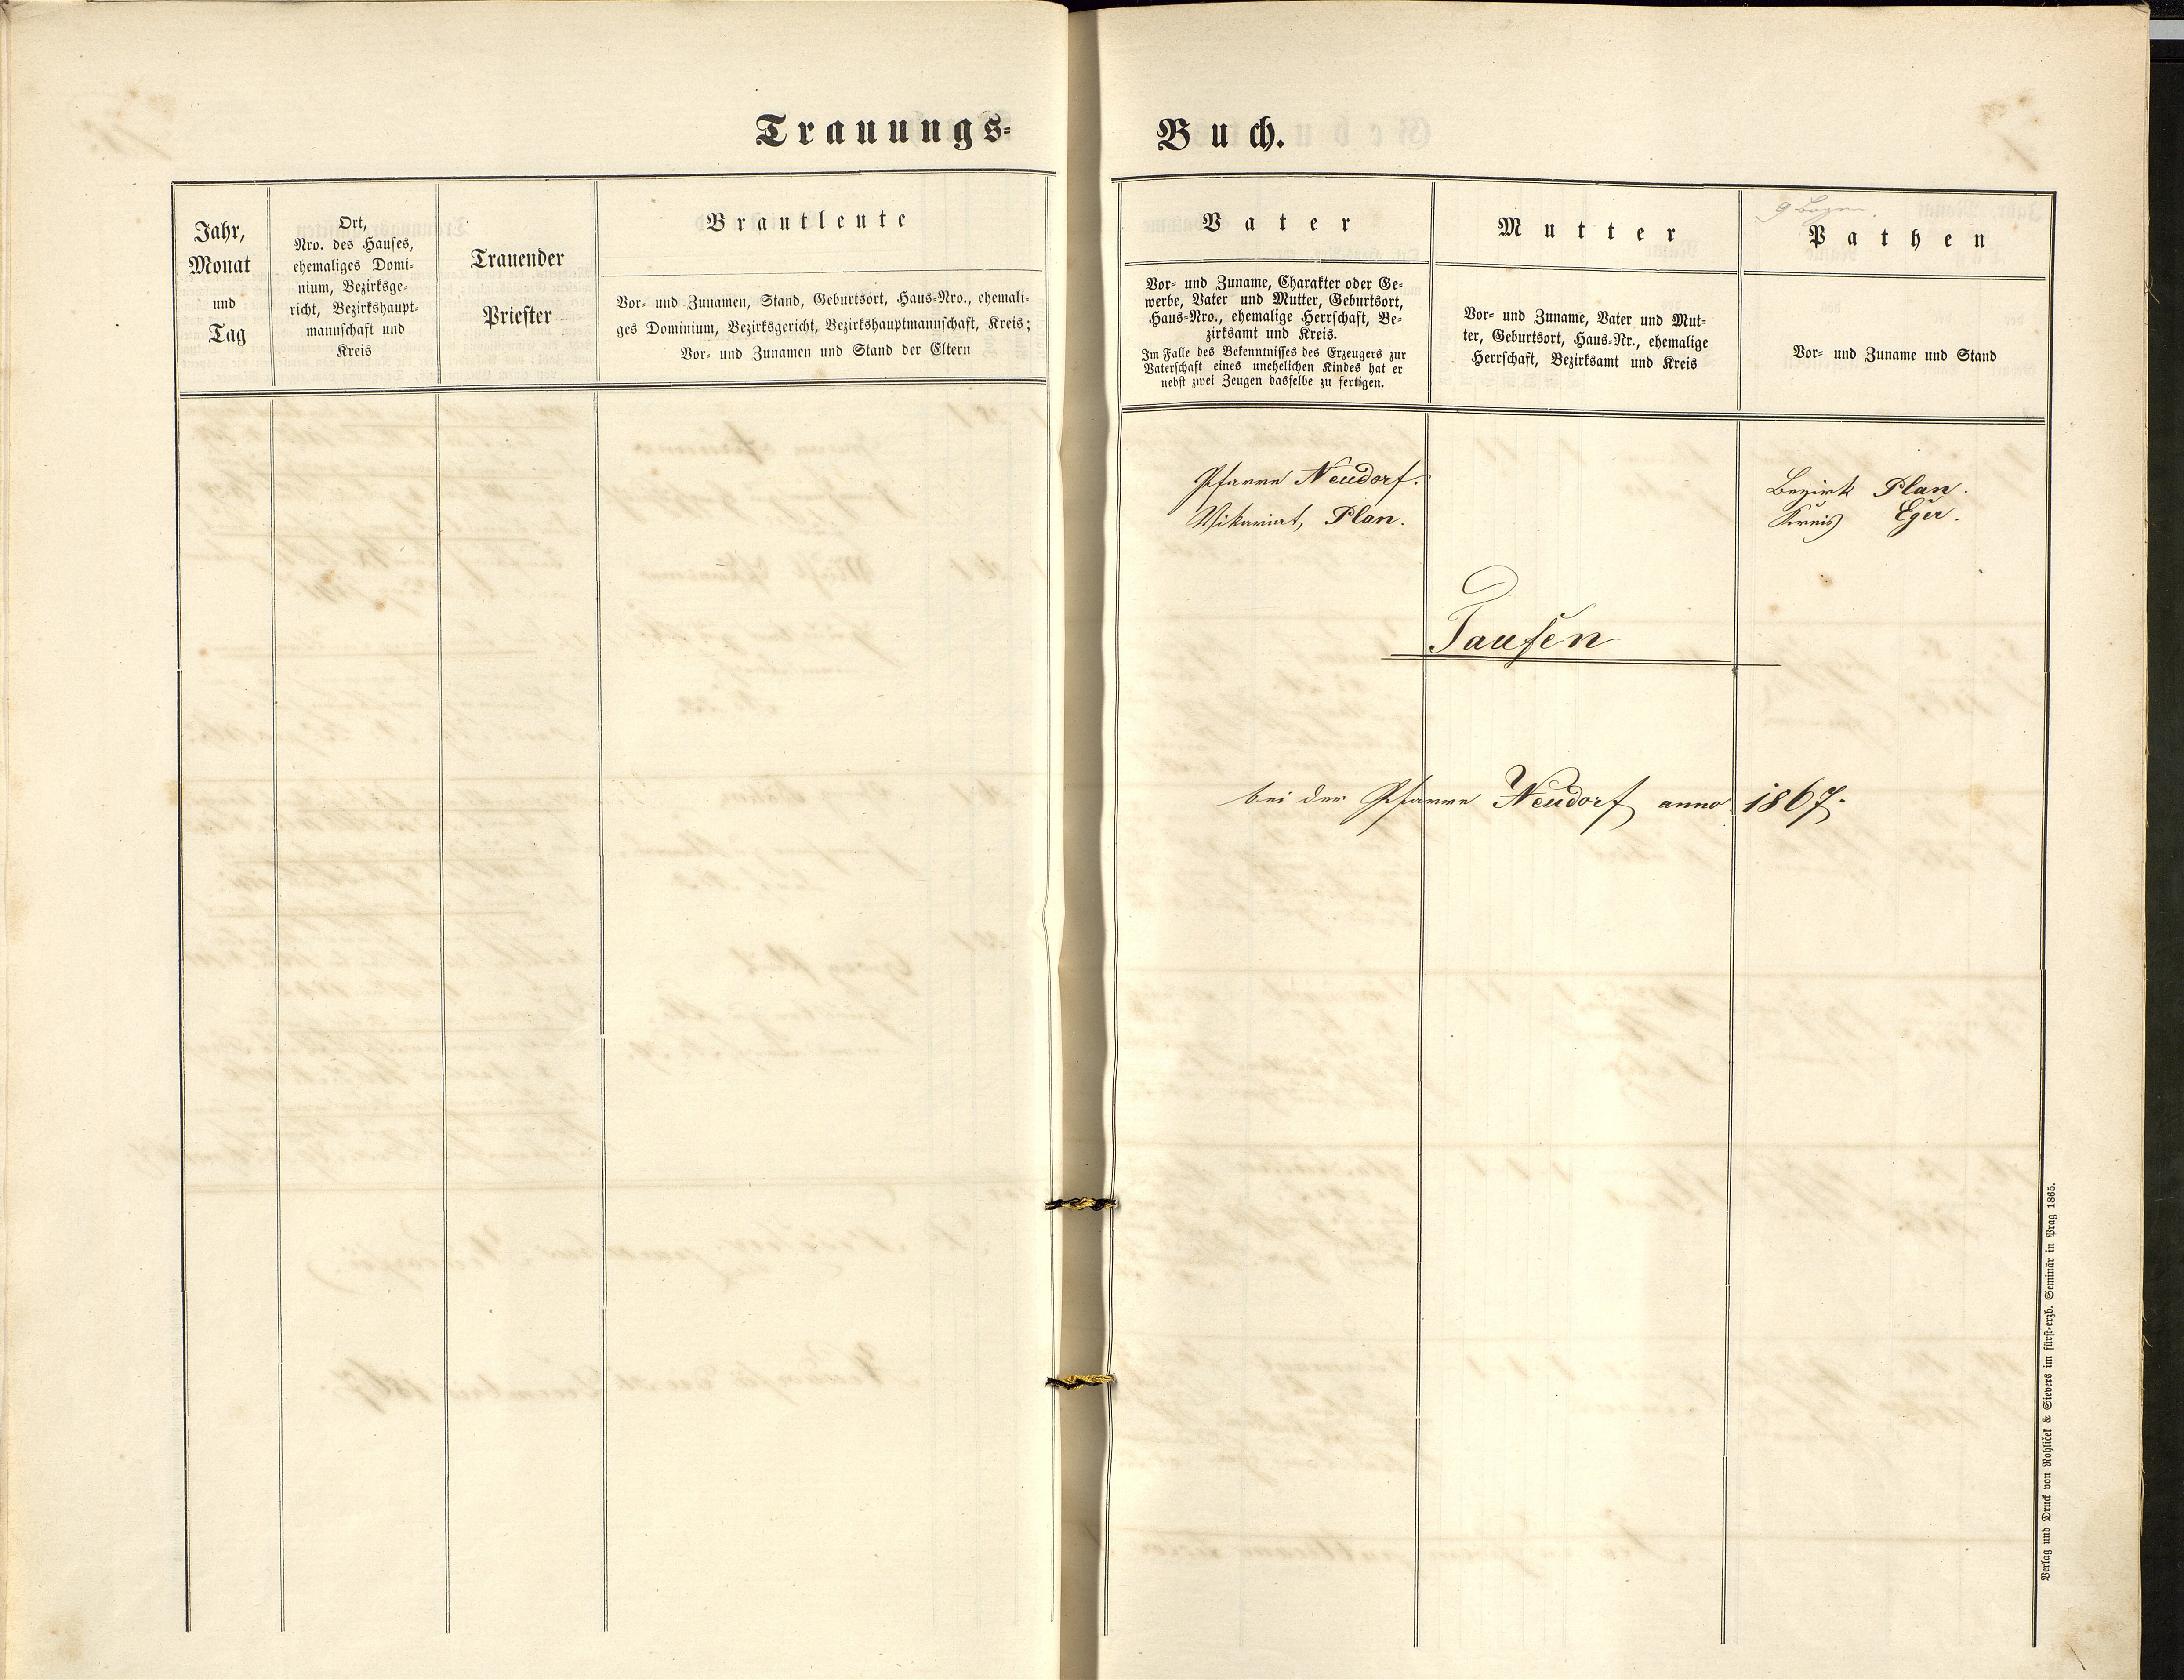 Trauungs-
Jahr,
Monat
und
Tag
Ort,
Nro. des Hauses,
ehemaliges Domi-
nium, Bezirksge-
richt, Bezirkshaupt-
mannschaft und
Kreis
Trauender
Priester
Brautleute
Vor- und Zunamen, Stand, Geburtsort, Haus-Nro., ehemali-
ges Dominium, Bezirksgericht, Bezirkshauptmannschaft, Kreis;
Vor- und Zunamen und Stand der Eltern
Buch.
Vater
Vor- und Zuname, Charakter oder Ge-
werbe, Vater und Mutter, Geburtsort,
Haus-Nro., ehemalige Herrschaft, Be-
zirksamt und Kreis.
Im Falle des Bekenntnisses des Erzeugers zur
Vaterschaft eines unehelichen Kindes hat er
nebst zwei Zeugen dasselbe zu fertigen.
Mutter
Vor- und Zuname, Vater und Mut-
ter, Geburtsort, Haus-Nr., ehemalige
Herrschaft, Bezirksamt und Kreis
9 Bogen.
Pathen
Vor- und Zuname und Stand
Pfarre Neudorf.
Vikariat, Plan.
Bezirk Plan.
Kreis Eger.
Taufen
bei der Pfarre Neudorf anno 1867.
Verlag und Druck von Rohliček & Sievers im fürst-erzb. Seminär in Prag 1865.